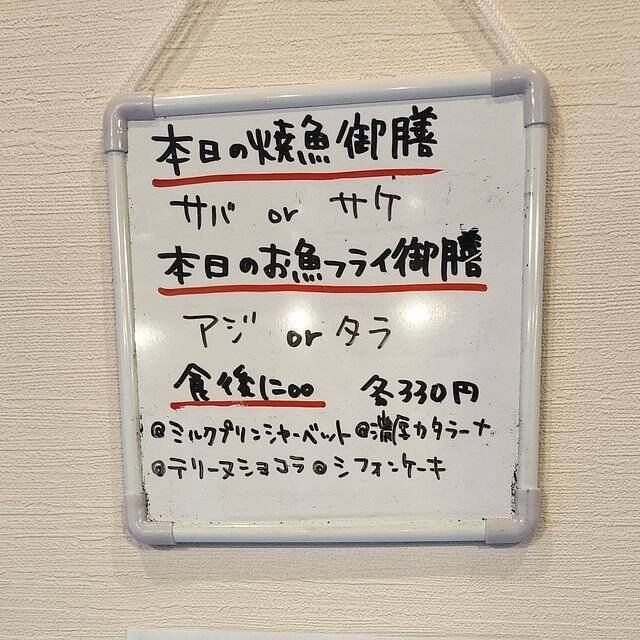 本日の焼魚御膳
サバ or サケ
本日のお魚フライ御膳
アジ or タラ
食後に∞ 各330円
@ミルクプリンシャーベット @濃厚カタラーナ
@テリーヌショコラ @シフォンケーキ